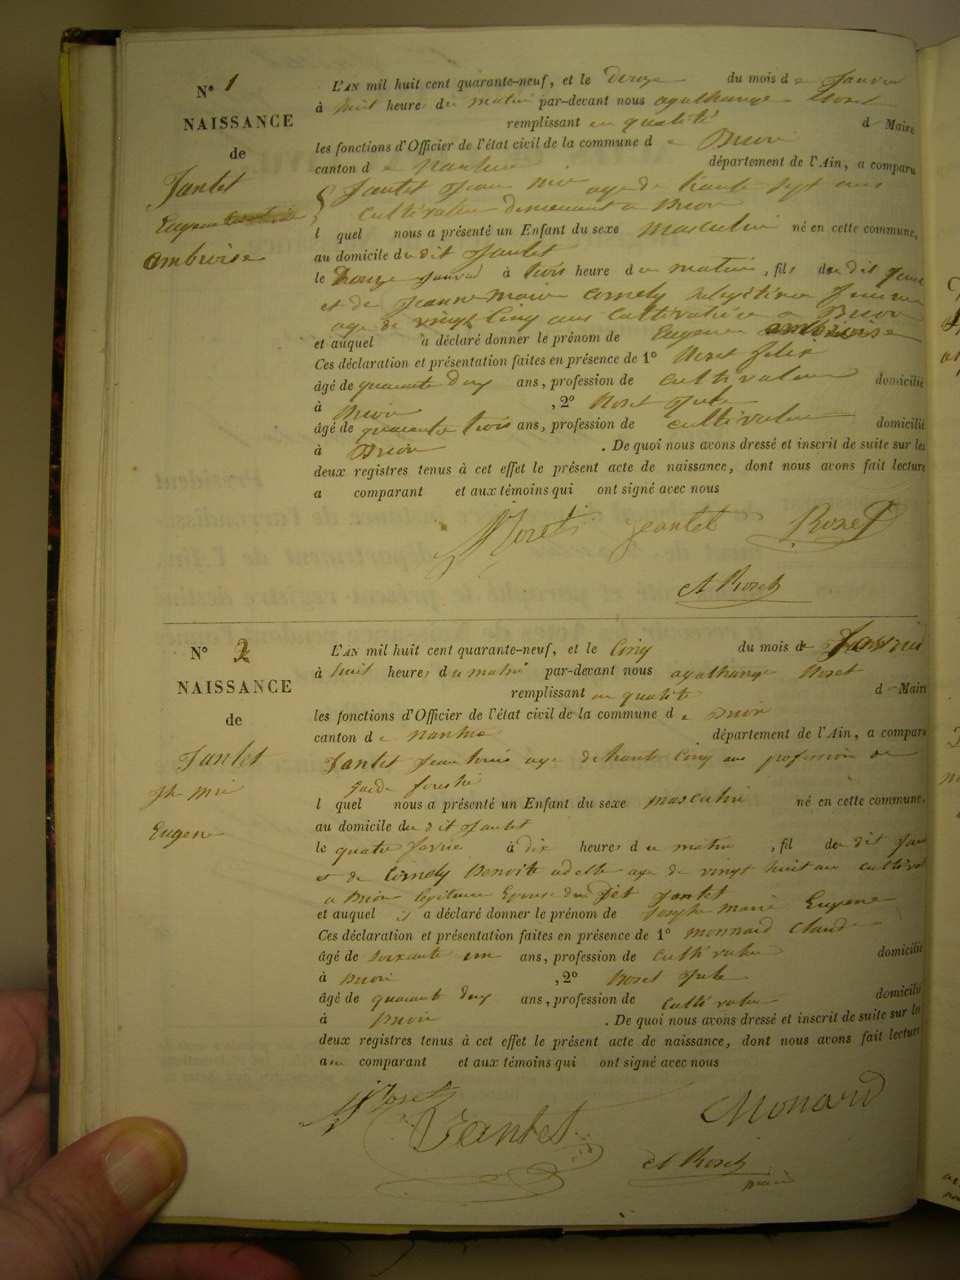 N° 1
NAISSANCE
de
Jantet
Eugene
ambroise
L'AN mil huit cent quarante-neuf, et le douze du mois de Janvier
à huit heures du matin par-devant nous agathange Roset
remplissant en qualité d Maire
les fonctions d'Officier de l'état civil de la commune de Brion
canton de Nantua département de l'Ain, a comparu
Jantet Jean Mie age de trente sept ans
cultivateur demeurant a Brion
l quel nous a présenté un Enfant du sexe masculin né en cette commune,
au domicile du dit Jantet
le Janvier à trois heure du matin, fils du dit Jantet
et de Jeanne Marie Cornely sa legitime femme
age de vingt Cinq ans cultivatrice a Brion
et auquel a déclaré donner le prénom de Eugene ambroise
Ces déclaration et présentation faites en présence de 1° Roset felix
âgé de quarante deux ans, profession de cultivateur domicilié
à Brion, 2° Roset Jule
âgé de quarante trois ans, profession de cultivateur domicilié
à Brion. De quoi nous avons dressé et inscrit de suite sur les
deux registres tenus à cet effet le présent acte de naissance, dont nous avons fait lecture
a comparant et aux témoins qui ont signé avec nous
Jeantet Rozet
A Roset
N° 2
NAISSANCE
de
Jantet
Jh Mie
Eugene
L'AN mil huit cent quarante-neuf, et le Cinq du mois de
à huit heures du matin par-devant nous agathange Roset
remplissant en qualité d Maire
les fonctions d'Officier de l'état civil de la commune de Brion
canton de Nantua département de l'Ain, a comparu
Jantet Jean louis age de trente Cinq ans profession de
garde forestié
l quel nous a présenté un Enfant du sexe masculin né en cette commune,
au domicile du dit Jantet
le quatre à dix heures du matin, fil du dit
et de Cornely Benoite adelle age de vingt huit ans
a Brion legitime Epouse du Dit Jantet
et auquel il a déclaré donner le prénom de Joseph marie Eugene
Ces déclaration et présentation faites en présence de 1° monnard Claude
âgé de soixante un ans, profession de cultivateur domicilié
à Brion, 2° Roset Jule
âgé de quarante deux ans, profession de cultivateur domicilié
à Brion. De quoi nous avons dressé et inscrit de suite sur les
deux registres tenus à cet effet le présent acte de naissance, dont nous avons fait lecture
au comparant et aux témoins qui ont signé avec nous
Jeantet Monard
A Roset
maire